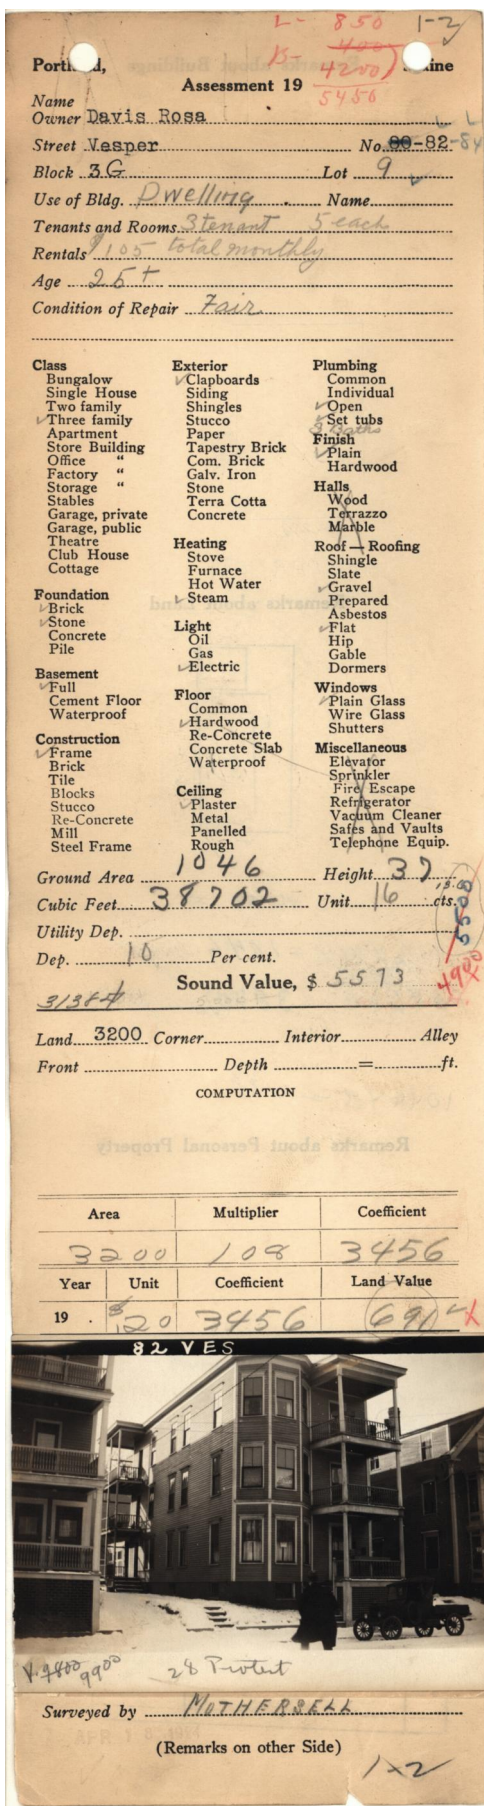 L- 850
1-2
B- 400
4200
5450
Portland, Maine
Assessment 19
Name
Owner Davis Rosa
Street Vesper No. 80-82-84
Block 3G Lot 9
Use of Bldg. Dwelling Name
Tenants and Rooms 3 tenant 5 each
Rentals $105 total monthly
Age 25+
Condition of Repair Fair
Class
Bungalow
Single House
Two family
Three family
Apartment
Store Building
Office "
Factory "
Storage "
Stables
Garage, private
Garage, public
Theatre
Club House
Cottage
Foundation
Brick
Stone
Concrete
Pile
Basement
Full
Cement Floor
Waterproof
Construction
Frame
Brick
Tile
Blocks
Stucco
Re-Concrete
Mill
Steel Frame
Exterior
Clapboards
Siding
Shingles
Stucco
Paper
Tapestry Brick
Com. Brick
Galv. Iron
Stone
Terra Cotta
Concrete
Heating
Stove
Furnace
Hot Water
Steam
Light
Oil
Gas
Electric
Floor
Common
Hardwood
Re-Concrete
Concrete Slab
Waterproof
Ceiling
Plaster
Metal
Panelled
Rough
Plumbing
Common
Individual
Open
Set tubs
3 Baths
Finish
Plain
Hardwood
Halls
Wood
Terrazzo
Marble
Roof — Roofing
Shingle
Slate
Gravel
Prepared
Asbestos
Flat
Hip
Gable
Dormers
Windows
Plain Glass
Wire Glass
Shutters
Miscellaneous
Elevator
Sprinkler
Fire Escape
Refrigerator
Vacuum Cleaner
Safes and Vaults
Telephone Equip.
Ground Area 1046 Height 37
Cubic Feet 38702 Unit 16 cts.
5500
Utility Dep.
Dep. 10 Per cent.
Sound Value, $ 5573
4900
31384
Land 3200 Corner Interior Alley
Front Depth = ft.
COMPUTATION
Area Multiplier Coefficient
3200 108 3456
Year Unit Coefficient Land Value
19 . $.20 3456 691
82 VES
V. 9800
9900
28 Protest
Surveyed by MOTHERSELL
(Remarks on other Side)
1-2